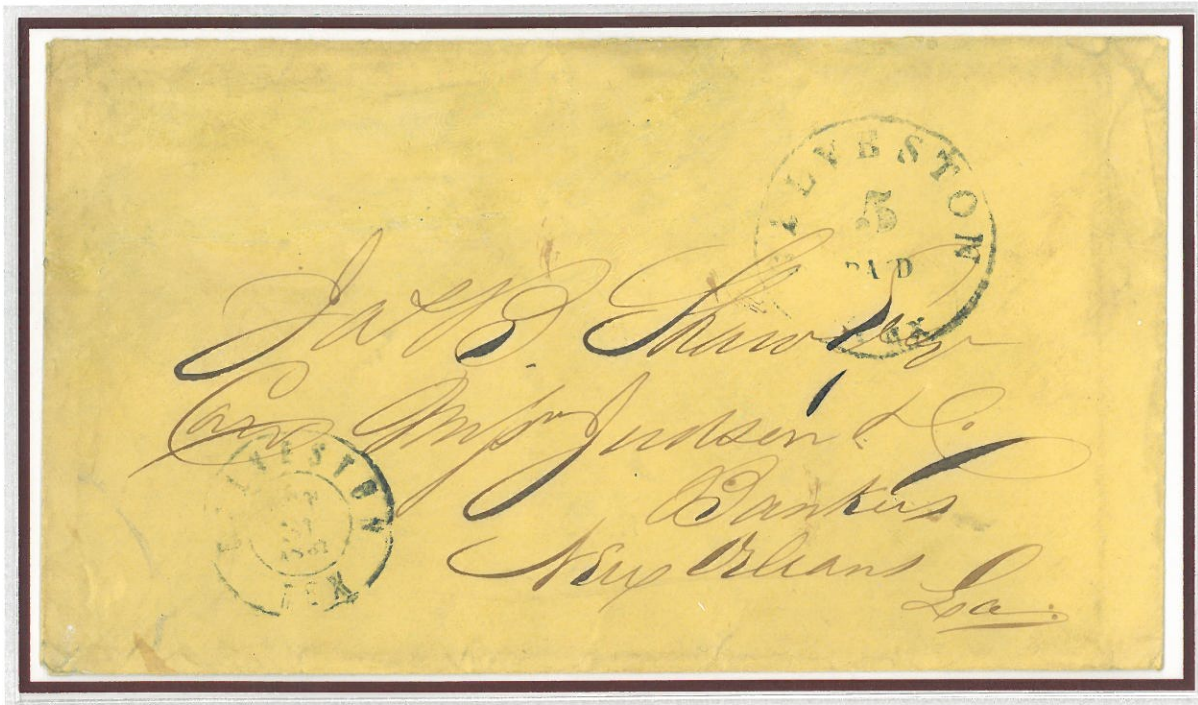 GALVESTON
5
PAID
TEX
Jas B.
Care Mess Judson & Co.
Bankers
New Orleans
La.
GALVESTON
TEX